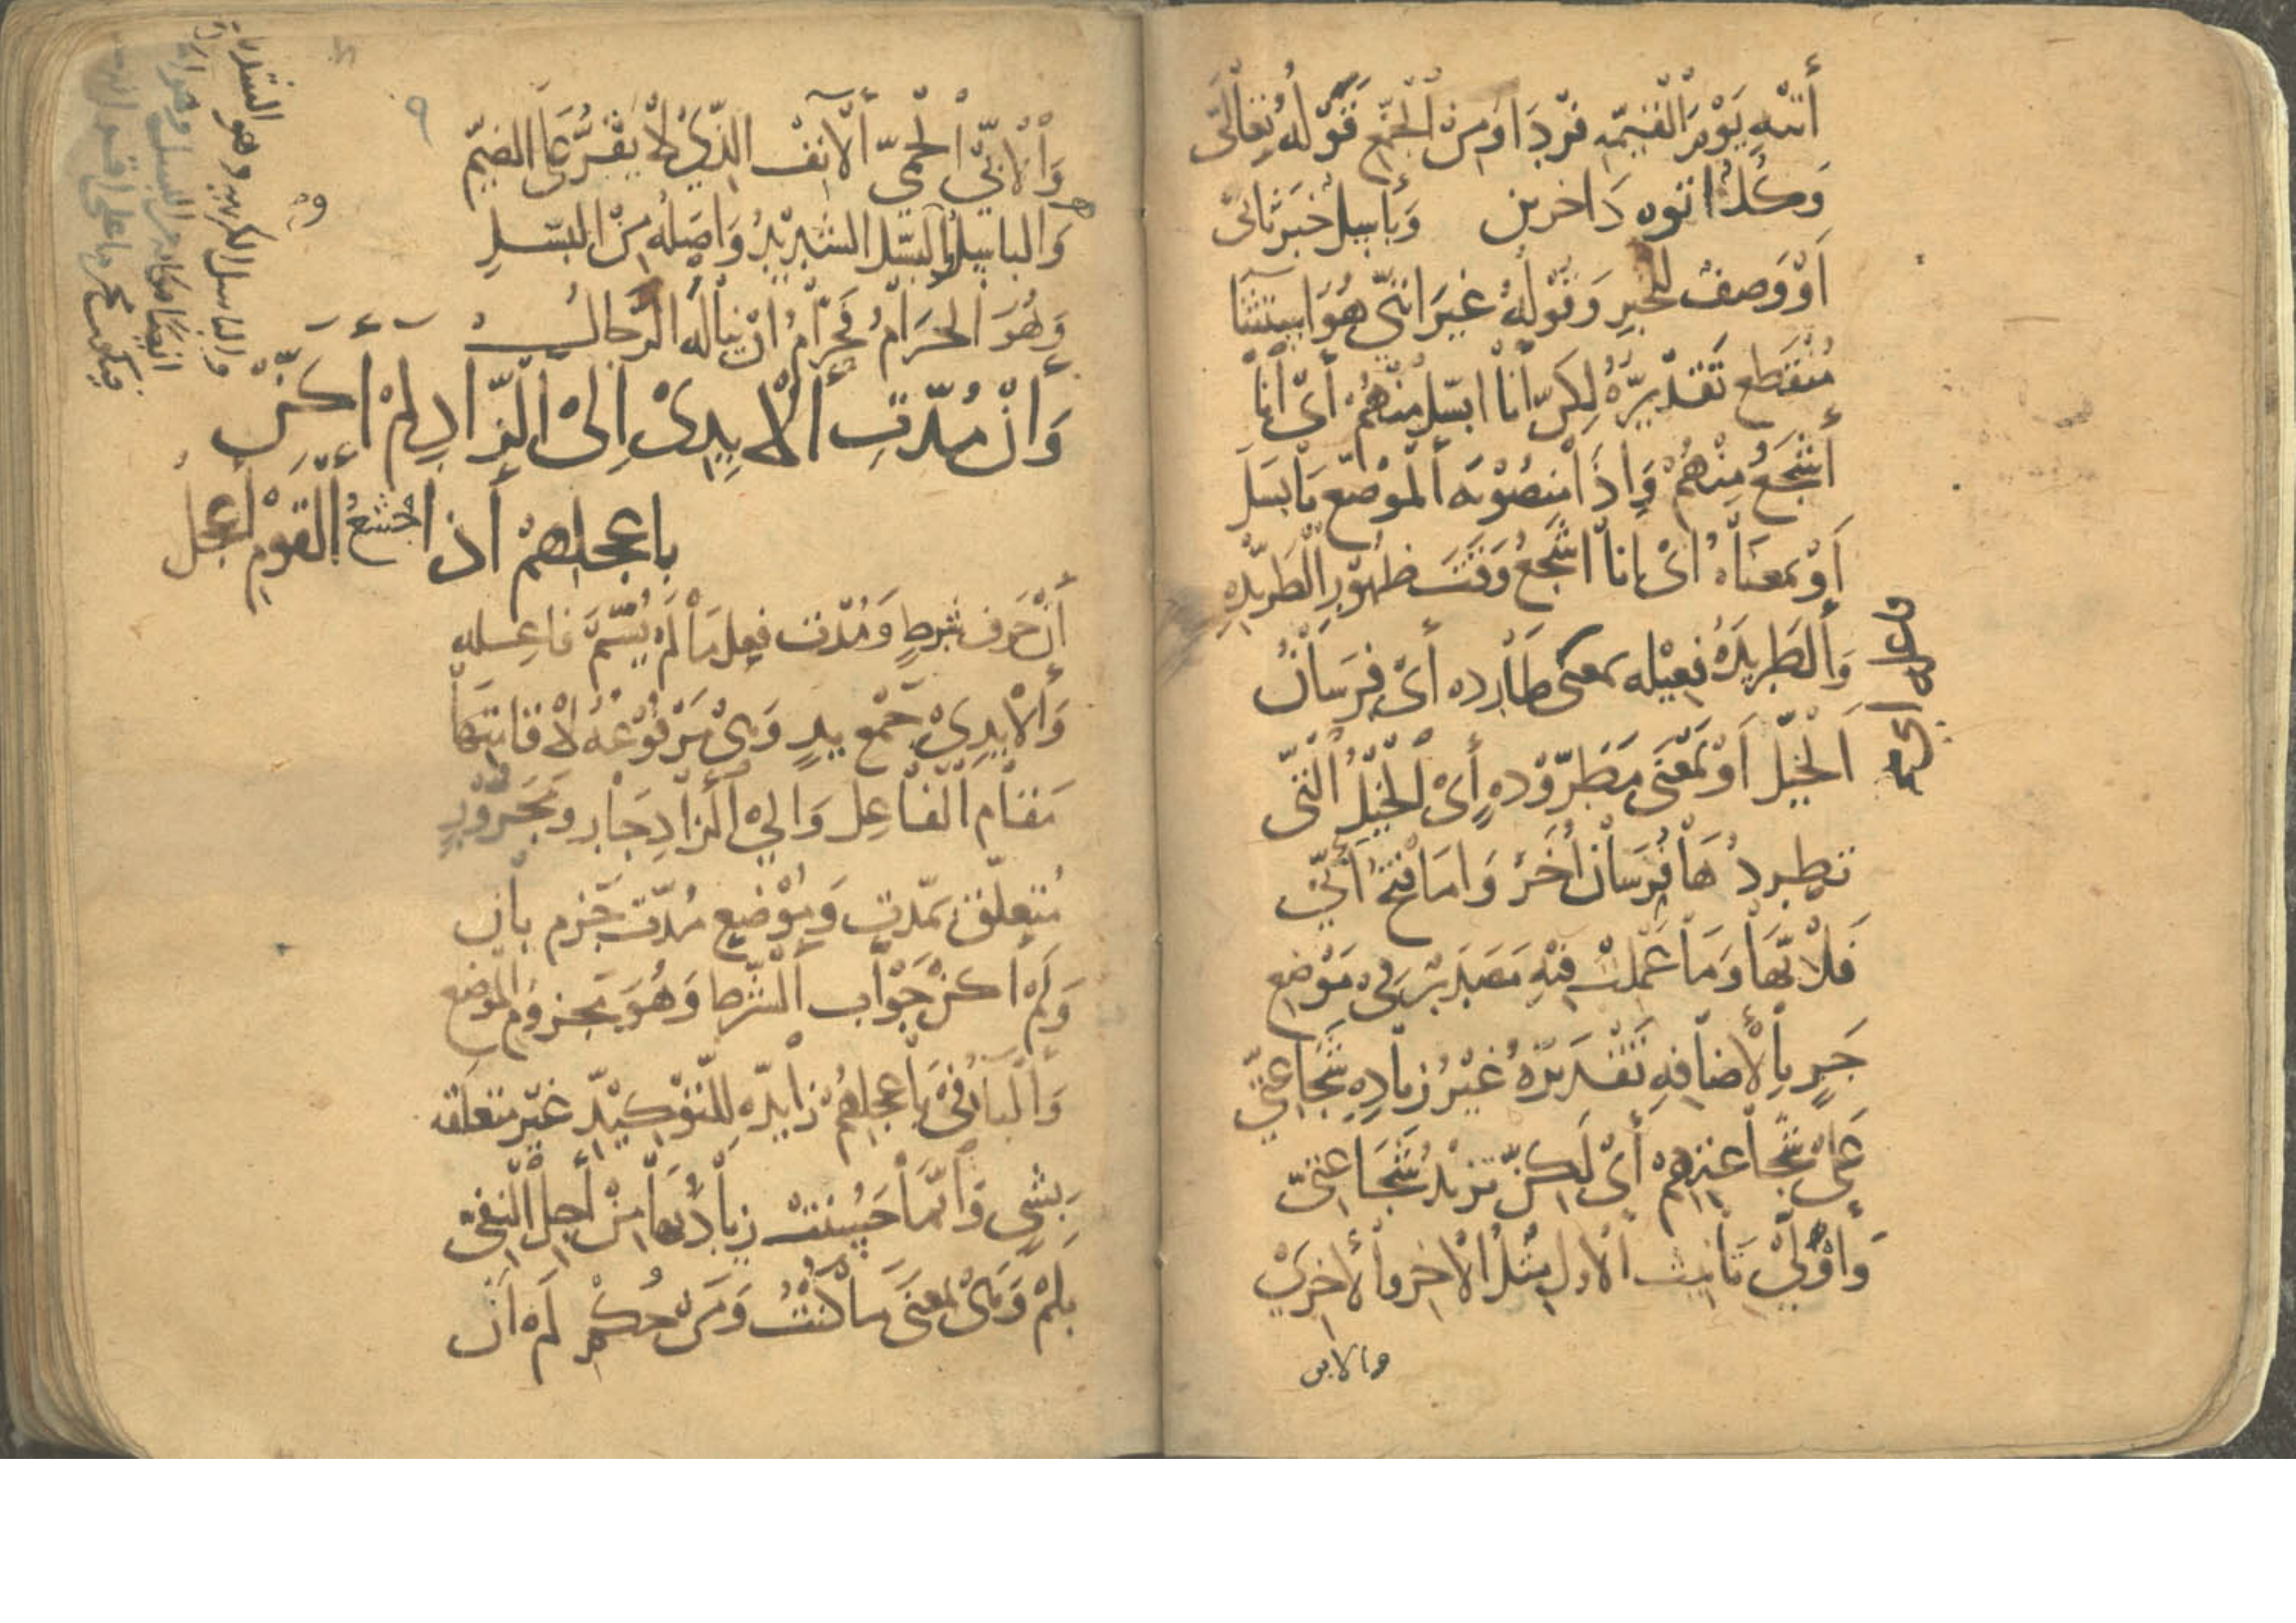 أتيه يَوْمَ القيمه فرْدَا وَمِنَ الجمْع قَوْلُه تعَالَى
وَكُلٌ اتوه دَاخرين وَبَاسِل خبَر ثانى
اَوْ وَصفٌ للخبرِ وَقوْلهُ غيرَ اننى هُوَ استثنا
مُنْقَطع تَقْديرُهُ لكن أنَا ابسَل منْهُم أى أنا
أشجَعُ مِنْهُمْ وَإذَا مَنصُوْبَه ألموْضع بَابسَل
أوْ بمعنَاهُ أىْ انَا اشجعُ وَقتَ ظهوْرِ الطَريْدهِ
وَالطَريدَهُ فعيْله بمعنى طَارده أىْ فرسَانُ
اَلخيْل اَوْ بمَعْنَى مَطرُوْدهٍ أىْ الخيْلُ التى
تطردُهَا فُرسَانٌ أُخَر وَامَا فتحُ أنّي
فَلأنّهَا وَمَا عَمِلتْ فيْهِ مَصدَر فى مَوْضع
جَرٍ بِالأضَافهِ تَقْدِيْرَهُ غيْرُ زيادِه شجَاعتي
عَلىْ شجَاعتهِمْ أىْ لَكِنْ تزيْدُ شجَاعتى
وَأوْلَيْ تَانيث الأول مثلُ الأخر وألأخريْ
وَألأبيّ الحمىّ ألأنف الذِيْ لا يقرُّ عَلى الضيْم
وَالبَاسِلُ البَسل الشدِيْدُ وَاصْلهُ مِنَ البَسْلِ
وَهُوَ الحَرَامُ فحرَامٌ انْ ينالَه الرّجالُ
وَانْ مُدّتِ ألأيدِىْ إلىْ الزّادِ لمْ أكنْ
باعجلهمْ أذ اجْشَعُ ألقَوْمِ أعجَلُ
أنْ حَرف شرطٍ وَمُدّت فِعل مَا لمْ يُسَمّ فاعِله
وَألأيدِيْ جَمْع يدٍ وَهىْ مَرْفُوْعَهُ لأقامَتها
مَقَام اَلفَاعِل وَالىْ الزادِ جَار وَمَجْرُوْرٍ
مُتعلّق بمدّتِ وَموْضع مُدّت جَزم بان
وَلَمْ اكنْ جَوَاب ألشّرط وَهُوَ مَجزوم الموْضع
وَالبَاءُ في بَاعجَلهُمْ زايدَه للتوْكِيْدِ غيْر متعلقه
بِشىٍ وَانّمَا حَسُنَتْ زيادَتُهَا مِنْ أجلِ النفىْ
بِلمْ وَهىْ بمعنَى مَا كنْتُ وَمنْ حُكمِ لَمْ انْ
والباسل الكريه وهو الشديد